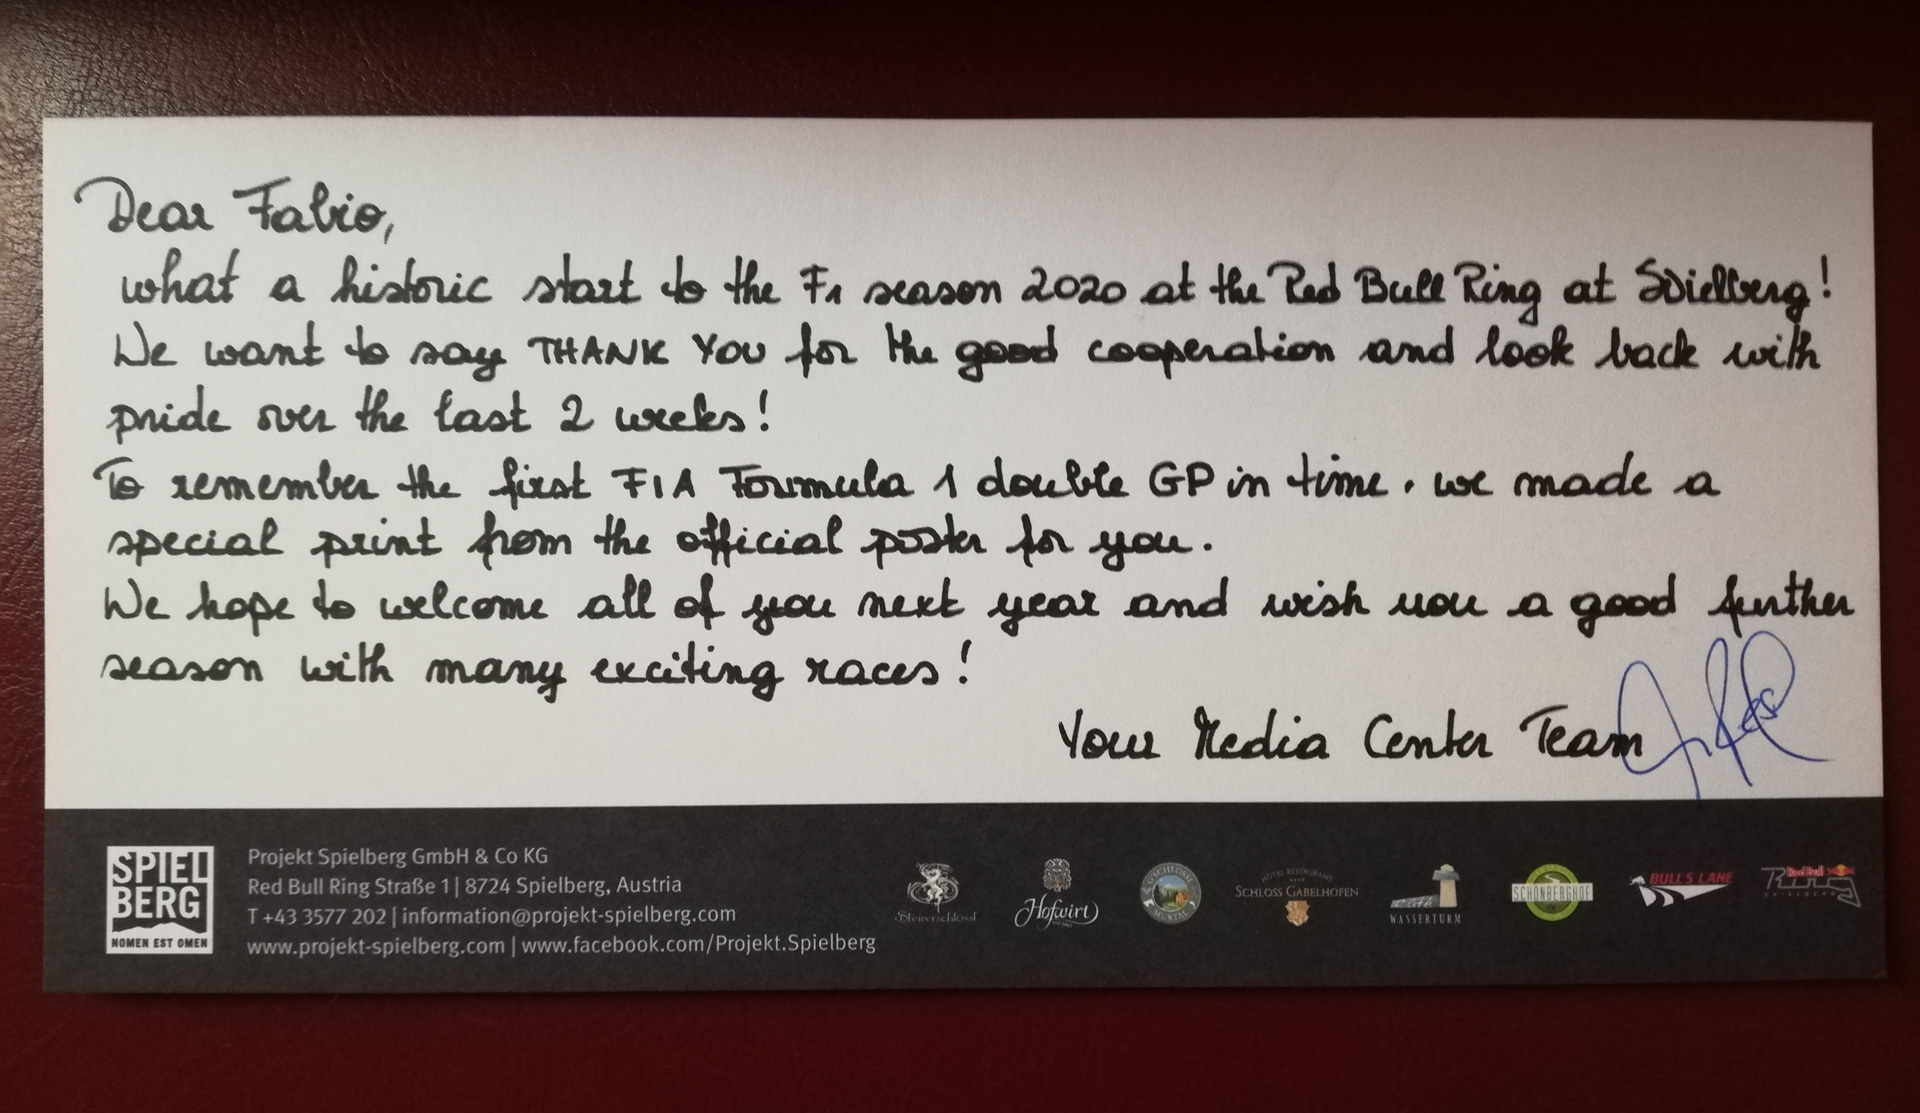 Dear Fabio,
what a historic start to the F1 season 2020 at the Red Bull Ring at Spielberg!
We want to say THANK YOU for the good cooperation and look back with
pride over the last 2 weeks!
To remember the first FIA Formula 1 double GP in time, we made a
special print from the official poster for you.
We hope to welcome all of you next year and wish you a good further
season with many exciting races!
Your Media Center Team
SPIEL
BERG
NOMEN EST OMEN
Projekt Spielberg GmbH & Co KG
Red Bull Ring Straße 1 | 8724 Spielberg, Austria
T +43 3577 202 | information@projekt-spielberg.com
www.projekt-spielberg.com | www.facebook.com/Projekt.Spielberg
Steirerschlössl
Hofwirt
G'SCHLÖSSL
MURTAL
HOTEL RESTAURANT
SCHLOSS GABELHOFEN
café
WASSERTURM
SCHÖNBERGHOF
BULL'S LANE
Red Bull
Ring
SPIELBERG